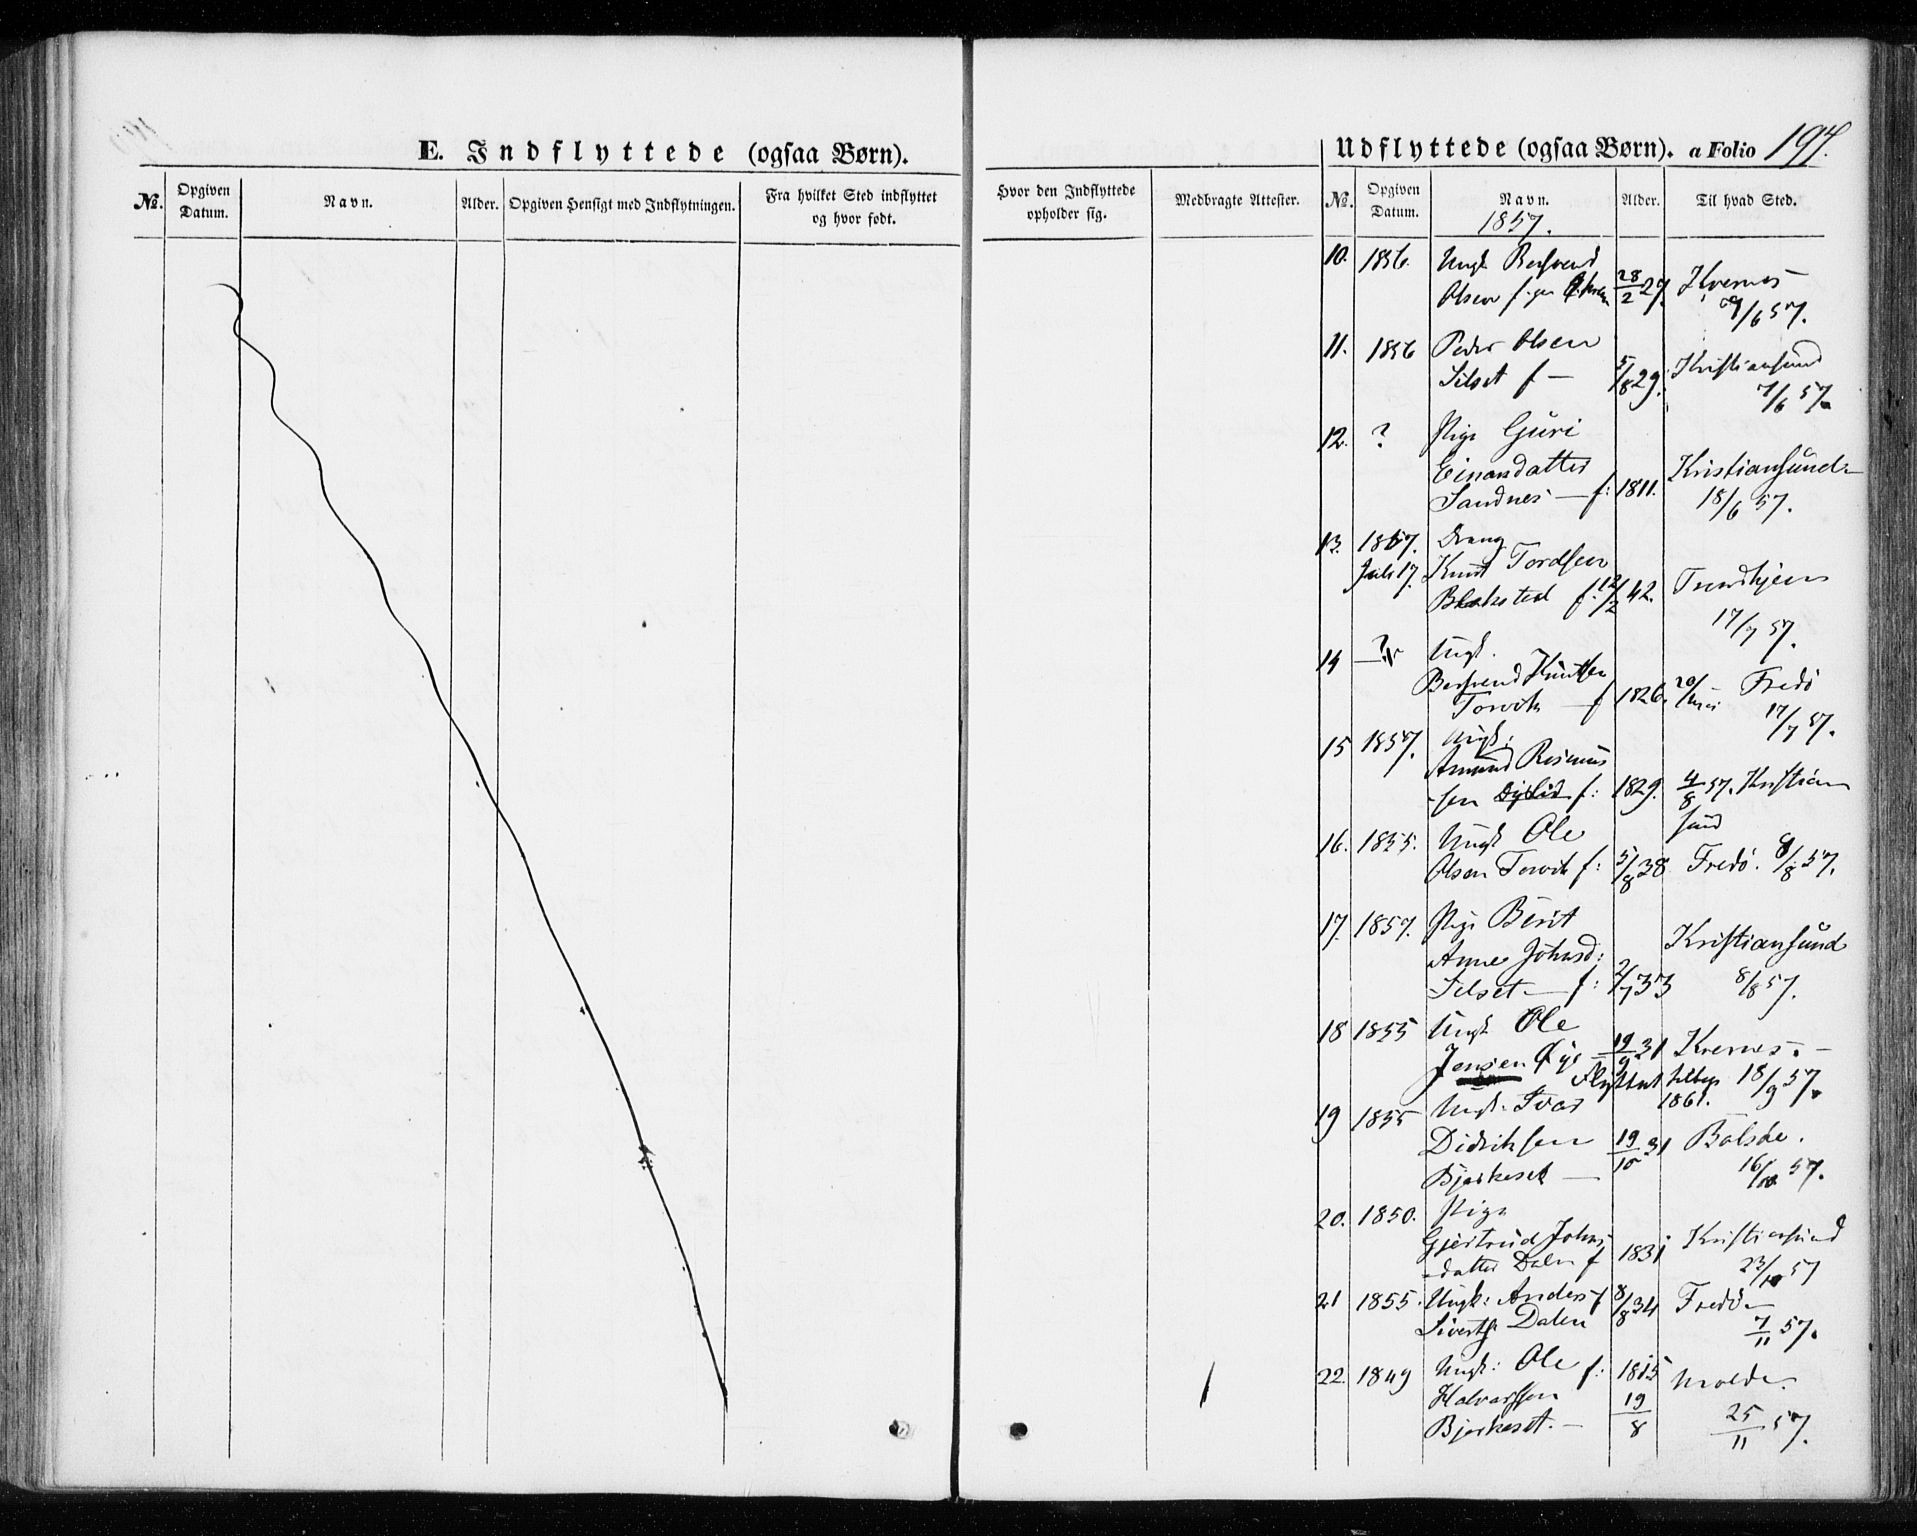 E. Indflyttede (ogsaa Børn).
No.
Opgiven Datum.
Navn.
Alder.
Opgiven Hensigt med Indflytningen.
Fra hvilket Sted indflyttet og hvor født.
Hvor den Indflyttede opholder sig.
Medbragte Attester.
Udflyttede (ogsaa Børn). a Folio 194.
No.
Opgiven Datum.
Navn.
Alder.
Til hvad Sted.
1857.
10. 1856. Ungk
Olsen 28/2 27. Kvernes
9/6 57.
11. 1856 Peder Olsen
Silset f — 5/8 29. Kristiansund
7/6 57.
12. ? Pige Guri
Einarsdatter
Sandnes — f: 1811. Kristiansund
18/6 57.
13. 1857. Dreng
Juli 17. Knut Tordsen
Blakstad f. 12/2 42. Trondhjem
17/7 57.
14 ? Ungk.
Knutsen
Torvik — f 1826. 20/Mai Fredø
17/7 57.
15 1857. Ungk:
Amund Rasmus
-sen f: 1829. 4/8 57. Kristian
sund
16. 1855. Ungk Ole
Olsen Torvik f: 5/8 38 Fredø. 8/8 57.
17. 1857. Pige Berit
Anne Johnsd:
Silset — f: 2/7 33 Kristiansund
8/8 57.
18 1855 Ungk Ole
Jensen Øye 19/9 31 Kvernes. —
Flyttet tilbage 1861. 18/9 57.
19 1855 Ungk. Ivar
Didriksen 19/10 31 Bolsøe.
Bjerkeset — 16/10 57.
20. 1850. Pige
Gjertrud Johns-
-datter Dalen f 1831 Kristiansund
23/10 57
21 1855. Ungk: Anders f 8/8 34 Fredø
Siverts. Dalen 7/11 57.
22. 1849 Ungk: Ole f: 1815 Molde
Halvorssen 19/8
Bjerkeset. — 25/11 57.